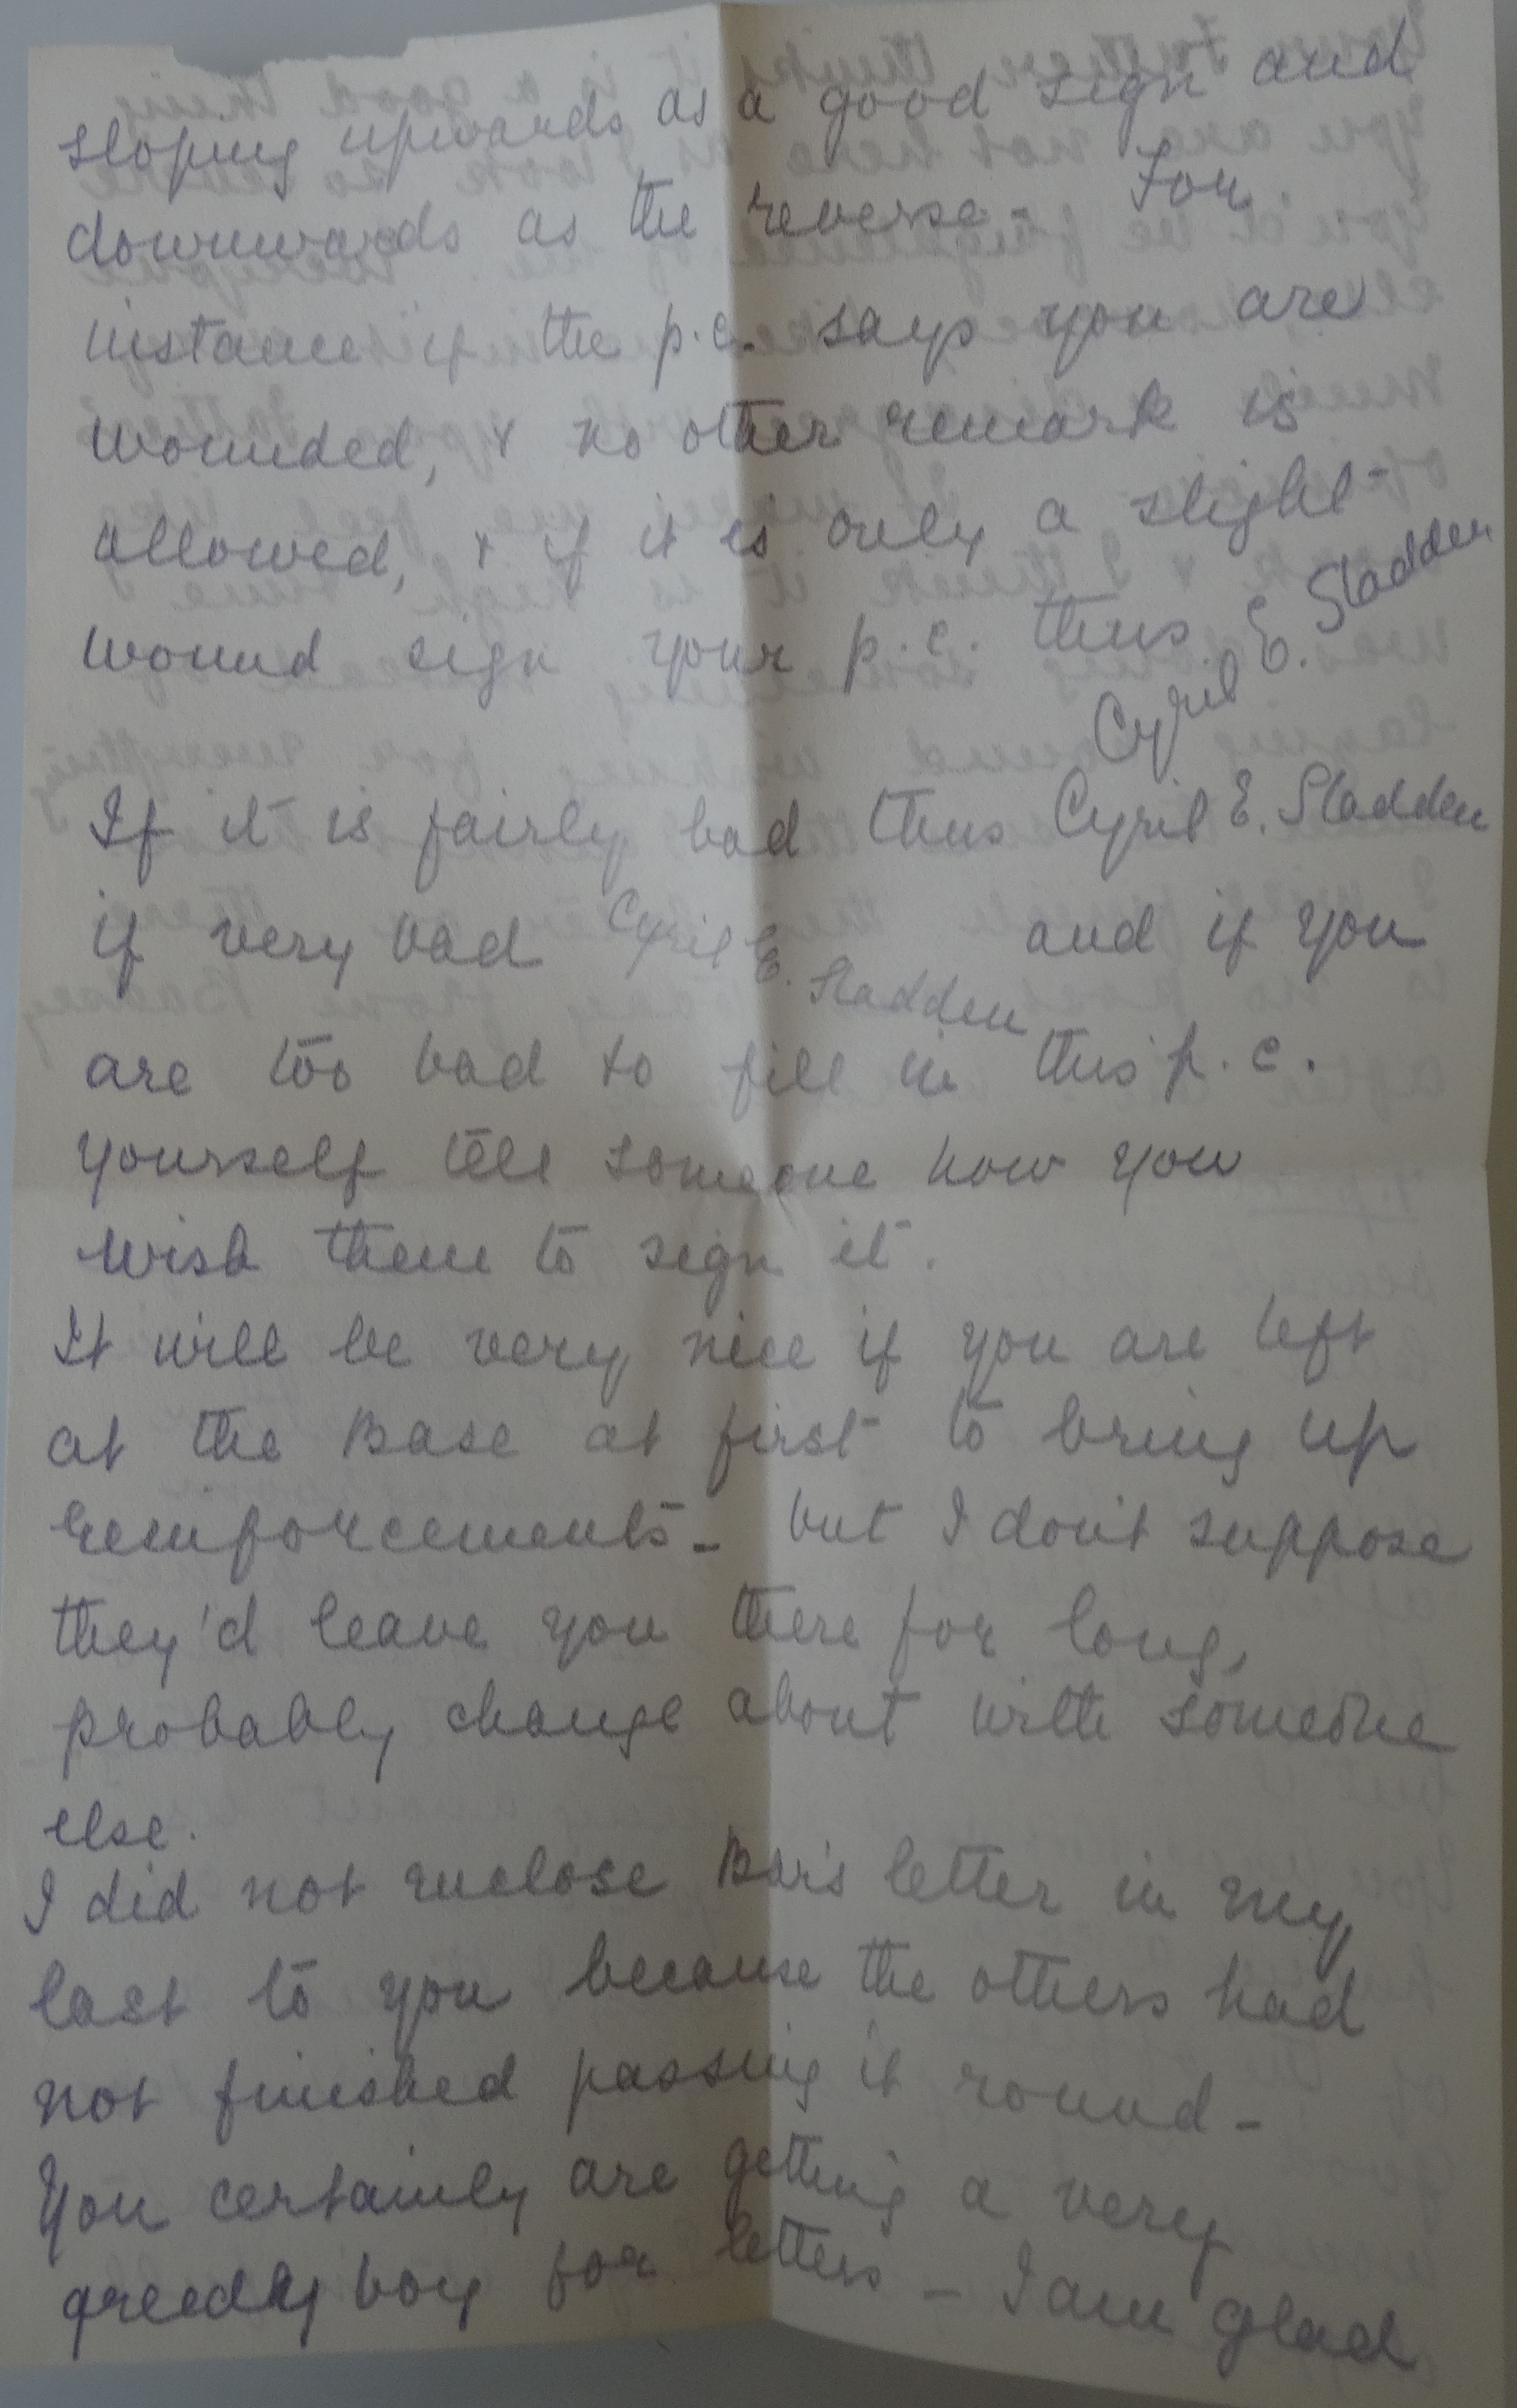 sloping upwards as a good sign and
downwards as the reverse - For
instance if the p.c. says you are
wounded, & no other remark is
allowed, & if it is only a slight
wound sign your p.c. thus. Cyril E. Sladden
If it is fairly bad thus Cyril E. Sladden
if very bad Cyril E. Sladden and if you
are too bad to fill in this p.c.
yourself tell someone how you
wish them to sign it.
It will be very nice if you are left
at the Base at first to bring up
reinforcements - but I don't suppose
they'd leave you there for long,
probably change about with someone
else.
I did not enclose Bar's letter in my
last to you because the others had
not finished passing it round -
You certainly are getting a very
greedy boy for letters - I am glad